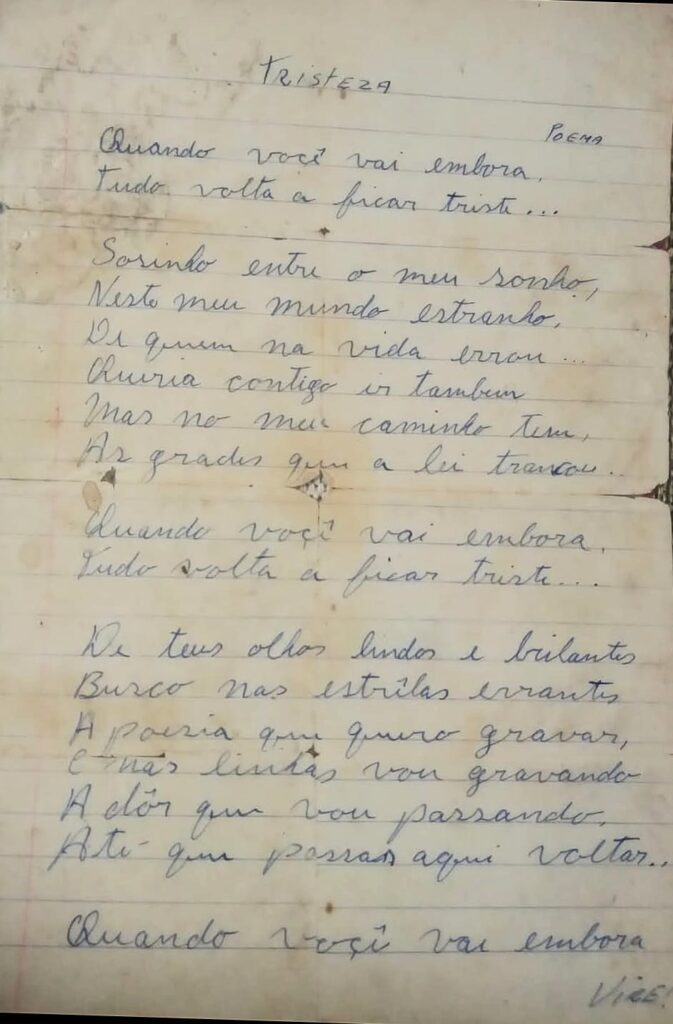 TRISTEZA
POEMA
Quando voçê vai embora,
Tudo volta a ficar triste...
Sosinho entre o meu sonho,
Neste meu mundo estranho,
De quem na vida errou...
Queria contigo ir tambem
Mas no meu caminho tem,
As grades que a lei trancou..
Quando voçê vai embora,
Tudo volta a ficar triste....
De teus olhos lindos e brilantes
Busco nas estrêlas errantes
A poesia que quero gravar,
E nas linhas vou gravando
A dôr que vou passando,
Até que possas aqui voltar..
Quando voçê vai embora
VIRE!